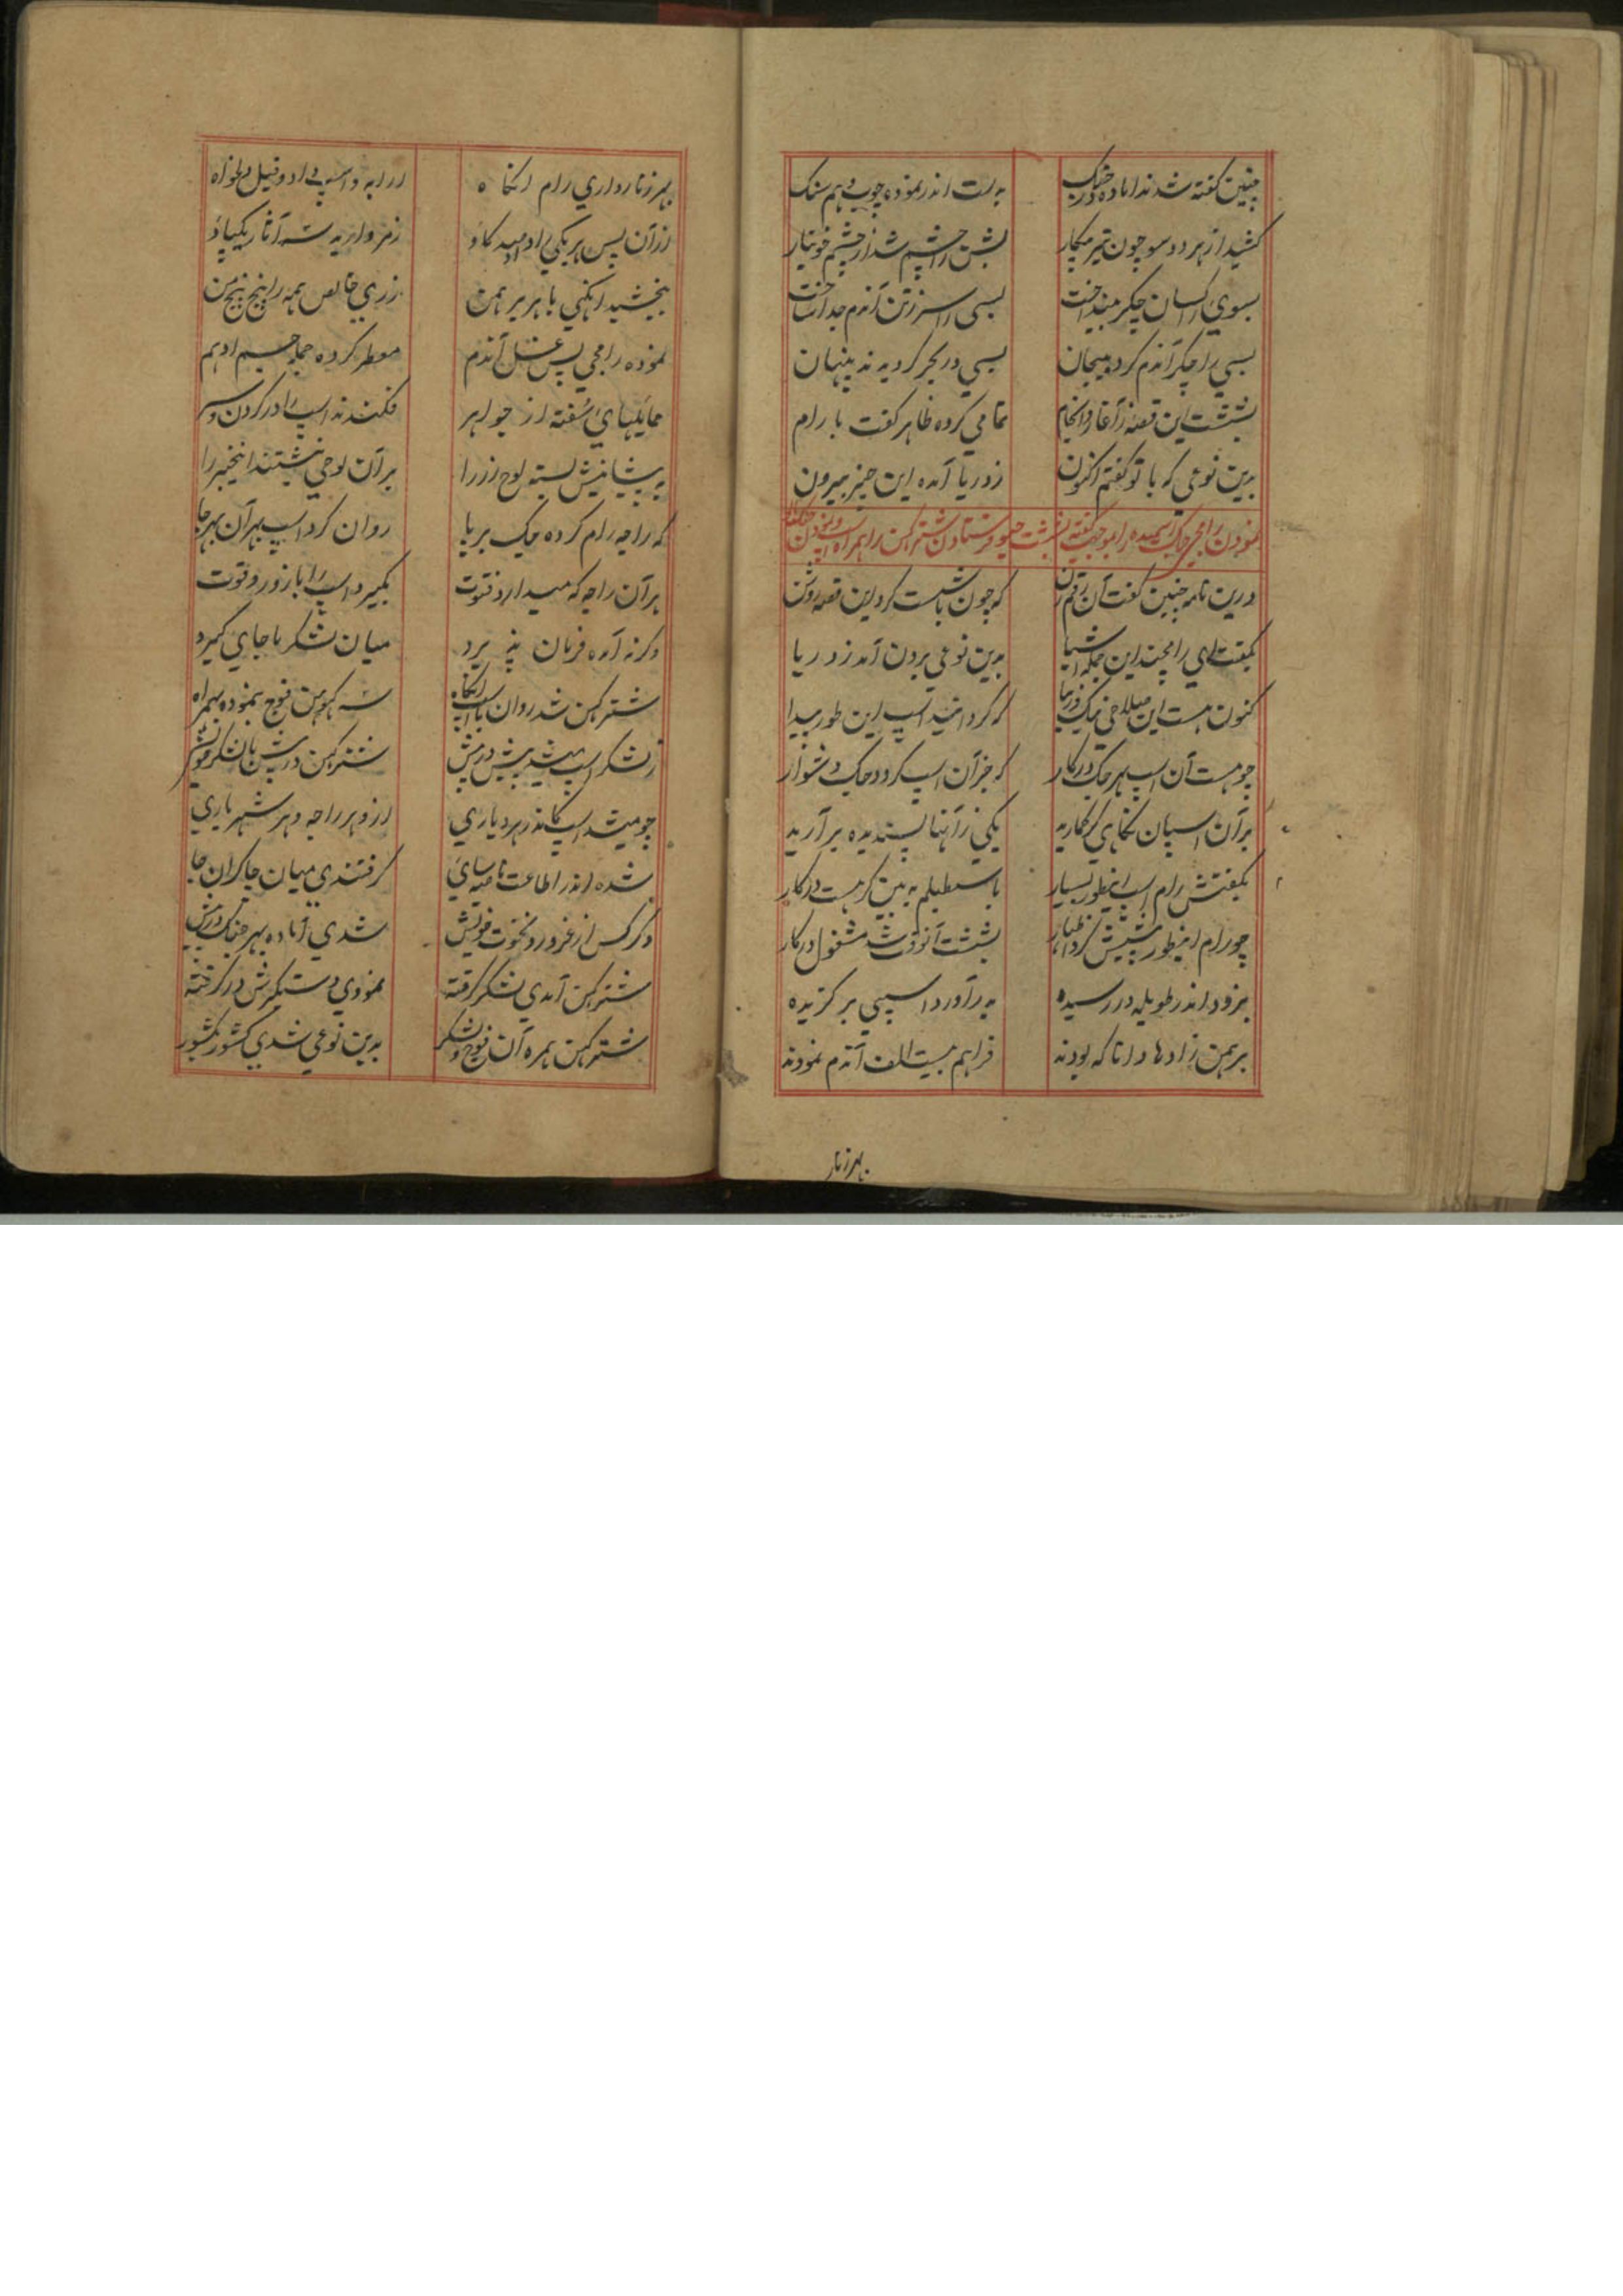 چنین گفته شدند اماده در جنگ بدست اندر نموده چوب و هم سنگ
کشید از هر دو سو چون تیر پیکار بشن را چشم شد از خشم خونبار
بسوی راکسان چکر بینداخت بسی را سر ز تن آندم جدا ساخت
بسی را چکر آندم کرد بیجان بسی در بحر کردیدند پنهان
بشست این قصه ز آغاز و انجام تمامی کرده ظاهر گفت با رام
بدین نوعی که با تو گفتم اکنون ز دریا آمده این چیز بیرون
نمودن رامچی جگ اسمیده را بموجب گفته بشست جیو و فرستادن شترکهن را همراه اسپ
درین نامه چنین گفت آن رقم زن که چون بشست کرد این قصه روشن
بگفت ای رامچند این جمله اشیا بدین نوعی برون آمد ز دریا
کنون هست این صلاحی نیک و زیبا که کردانید اسپ این طور پیدا
چو هست آن اسپ بهر جگ درکار که جز آن اسپ کردد جگ دشوار
بر آن اسپان نگاهی کر کمارید یکی ز آنها پسندیده بر آرید
بگفتش رام اسپ اینطور بسیار باسطبلم به بین کر هست درکار
چو رام اینطور پیشش کرد اظهار بشست آنوقت شد مشغول درکار
بزودی اندر طویله در رسیده بدر آورد اسپی بر گزیده
برهمن زادها دانا که بودند فراهم بیست الف آندم نمودند
بهر زنار
بهر زنار داری رام انگاه ارابه و اسپ داد و فیل دلخواه
از آن پس هر یکی را داد صد کاو ز مروارید سه آثار یکپاو
ببخشید انگهی با هر برهمن زری خالص همه را پنج پنج من
نموده رامچی پس غسل آندم معطر کرده جمله جسم ادهم
حمایلهای سفته از جواهر فکندند اسپ را در کردن و سر
به پیشانیش بسته لوح زر را بر آن لوحی نبشتند این خبر را
که راجه رام کرده جگ برپا روان کرد اسپ بهر آن بهر جا
هر آن راجه که میدارد فتوت بگیرد اسپ را با زور و قوت
وگرنه آمده فرمان پذیرد میان لشکر ما جای گیرد
شترکهن شد روان با اسپ انگاه سه کهوهن فوج بنموده همراه
ز لشکر اسپ میشد پیش در پیش شترکهن در پسش با لشکر خویش
چو میشد اسپ کاندر هر دیاری ازو هر راجه و هر شهریاری
شده اندر اطاعت ناصیه سای گرفتندی میان چاکران جا
وگر کس از غرور و نخوت خویش شدی آماده بهر جنگ درپیش
شترکهن آمدی لشکر گرفته نمودی دستگیرش در گرفته
شترکهن همره آن فوج و لشکر بدین نوعی شدی کشور بکشور